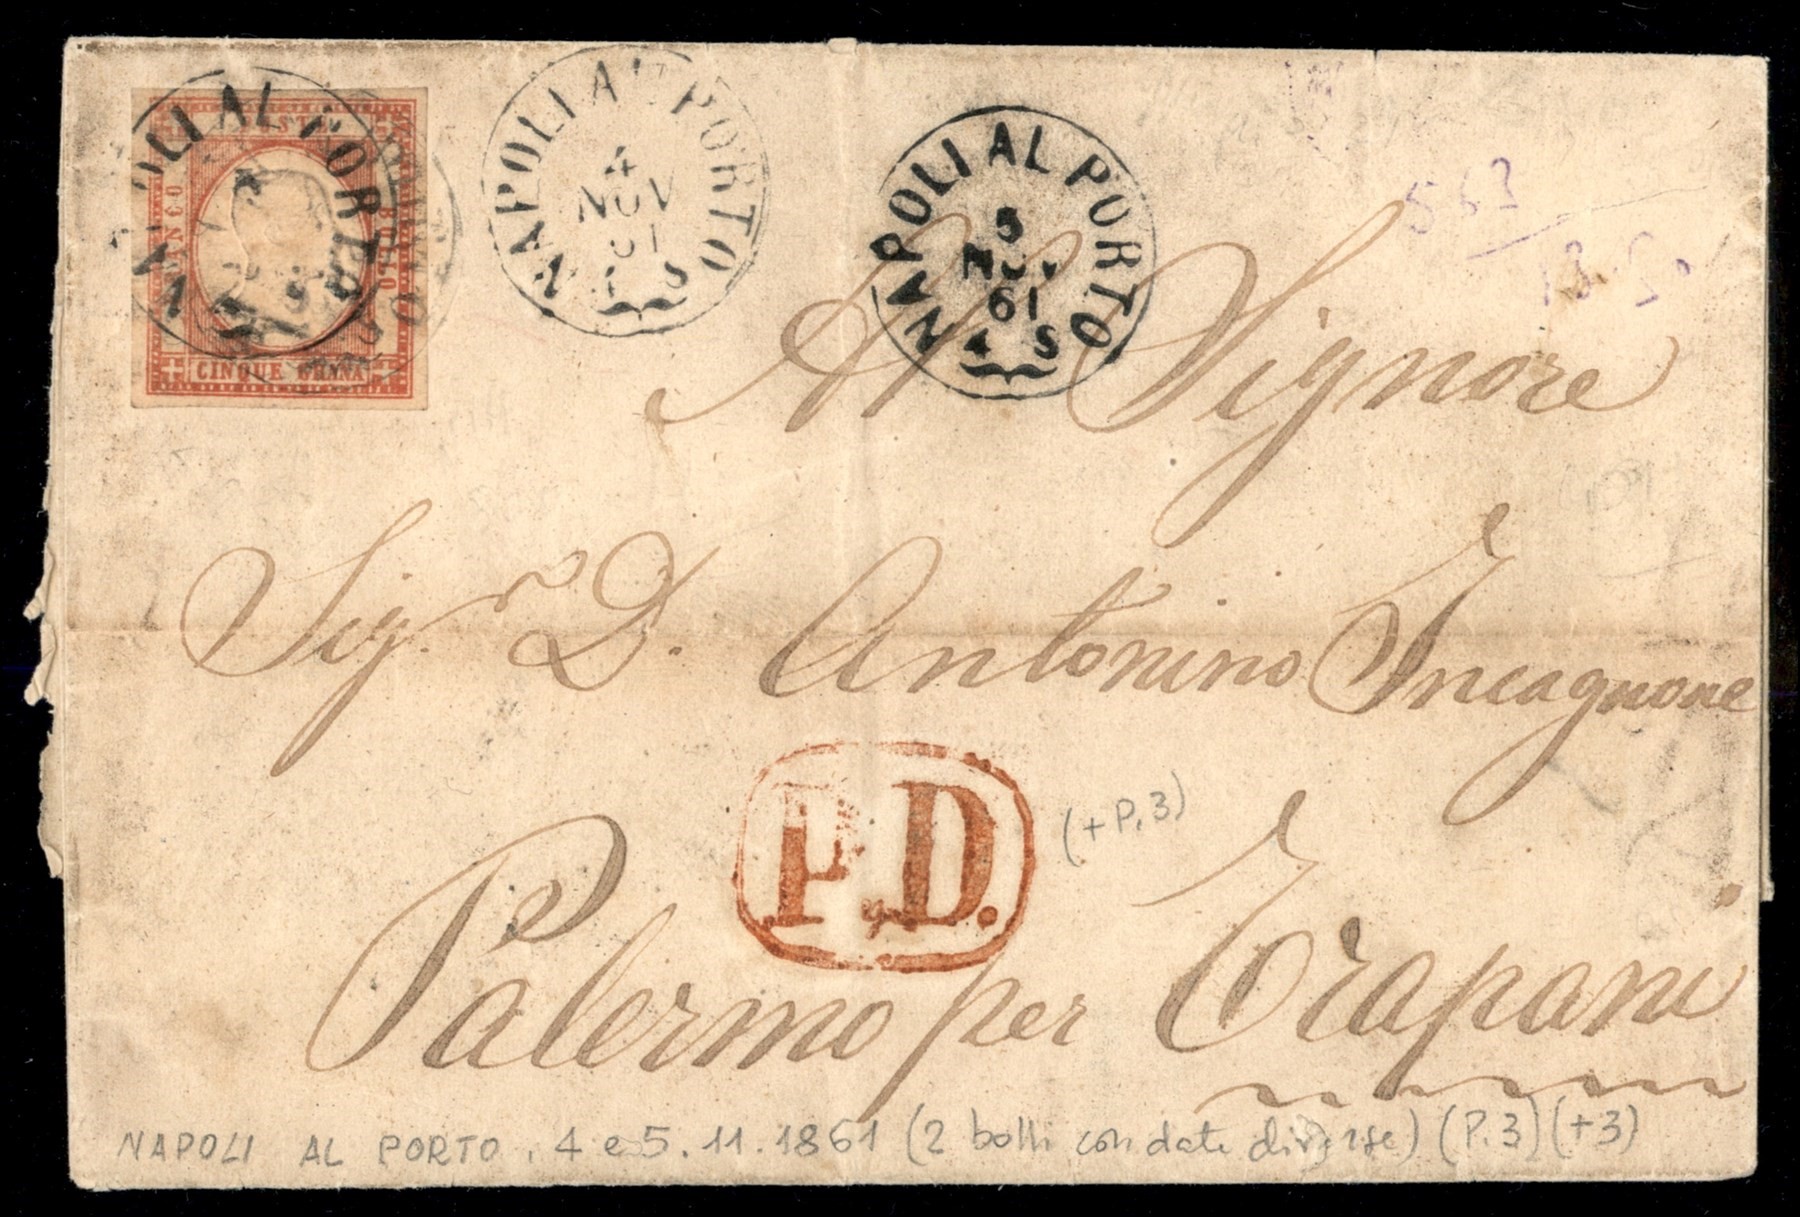 NAPOLI AL PORTO
FRANCO
BOLLO
CINQUE GRANA
NAPOLI AL PORTO
4
NOV
61
4 S
NAPOLI AL PORTO
5
NOV
61
4 S
563
Al Signore
Sigr. D. Antonino Incagnone
P.D.
(+ P.3)
Palermo per Trapani
NAPOLI AL PORTO, 4 e 5.11.1861 (2 bolli con date diverse) (P.3) (+3)